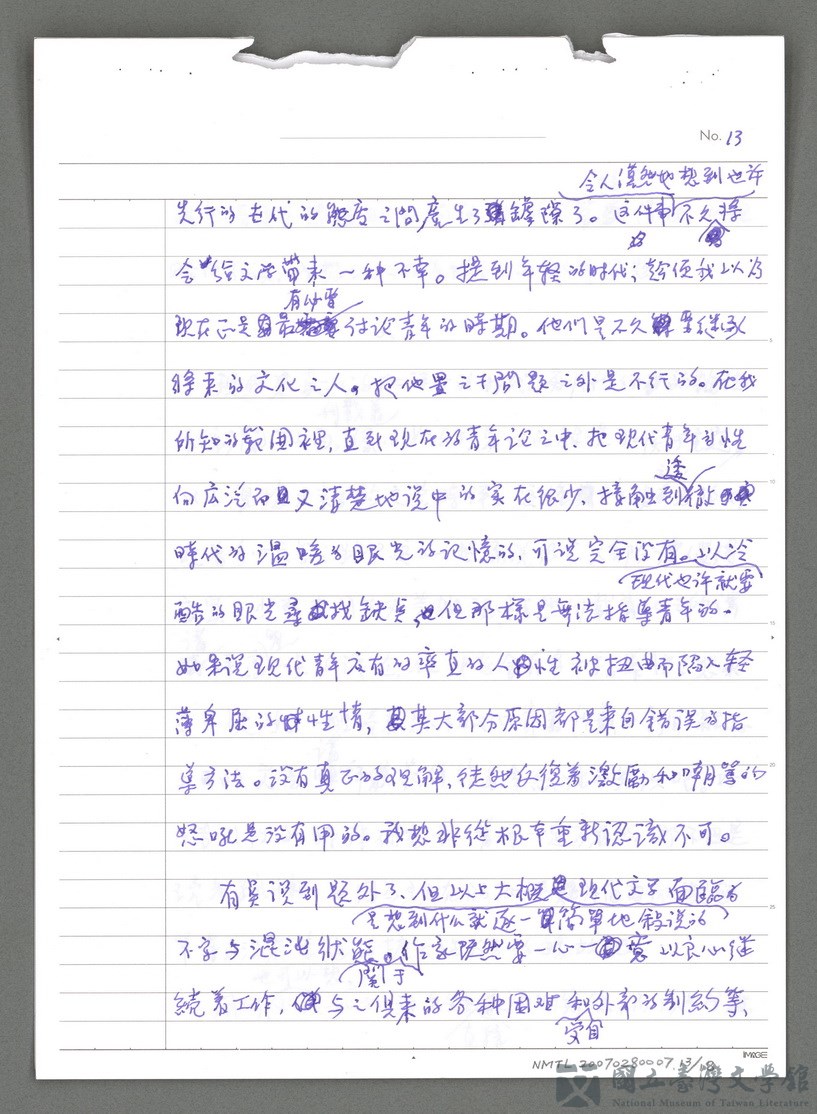 No. 13
令人漠然地想到也许
先行的世代的態度之間產生了罅隙了。这件事不久将
会给文学帶来一种不幸。提到年轻的时代,趁便我以为
有必要
现在正是最討论青年的時期。他们是不久要继承
将来的文化之人,把他置之于問題之外是不行的。在我
所知的範围裡,直到现在的青年论之中,把现代青年的性
向広泛而又清楚地说中的实在很少,接触到徹
透
時代的温暖的眼光的记憶的,可说完全没有。以冷
现代也许就要
酷的眼光尋找缺点,但那樣是無法指導青年的。
如果说现代青年应有的率真的人性被扭曲而陷入轻
薄卑屈的性情,其大部分原因都是来自錯误的指
導方法。没有真正的理解,徒然反復着激勵和嘲罵的
怒吼是没有用的。我想非從根本重新認識不可。
有些说到题外了,但以上大概是现代文学面臨的
是想到什么就逐一簡單地敘说的
不幸与混沌狀態。作家既然要一心一意以良心继
関于
続着工作,与之俱来的各种困难和外部的制約等、
受自
IMAGE
NMTL 20070280007.13/
國立臺灣文學館
National Museum of Taiwan Literature